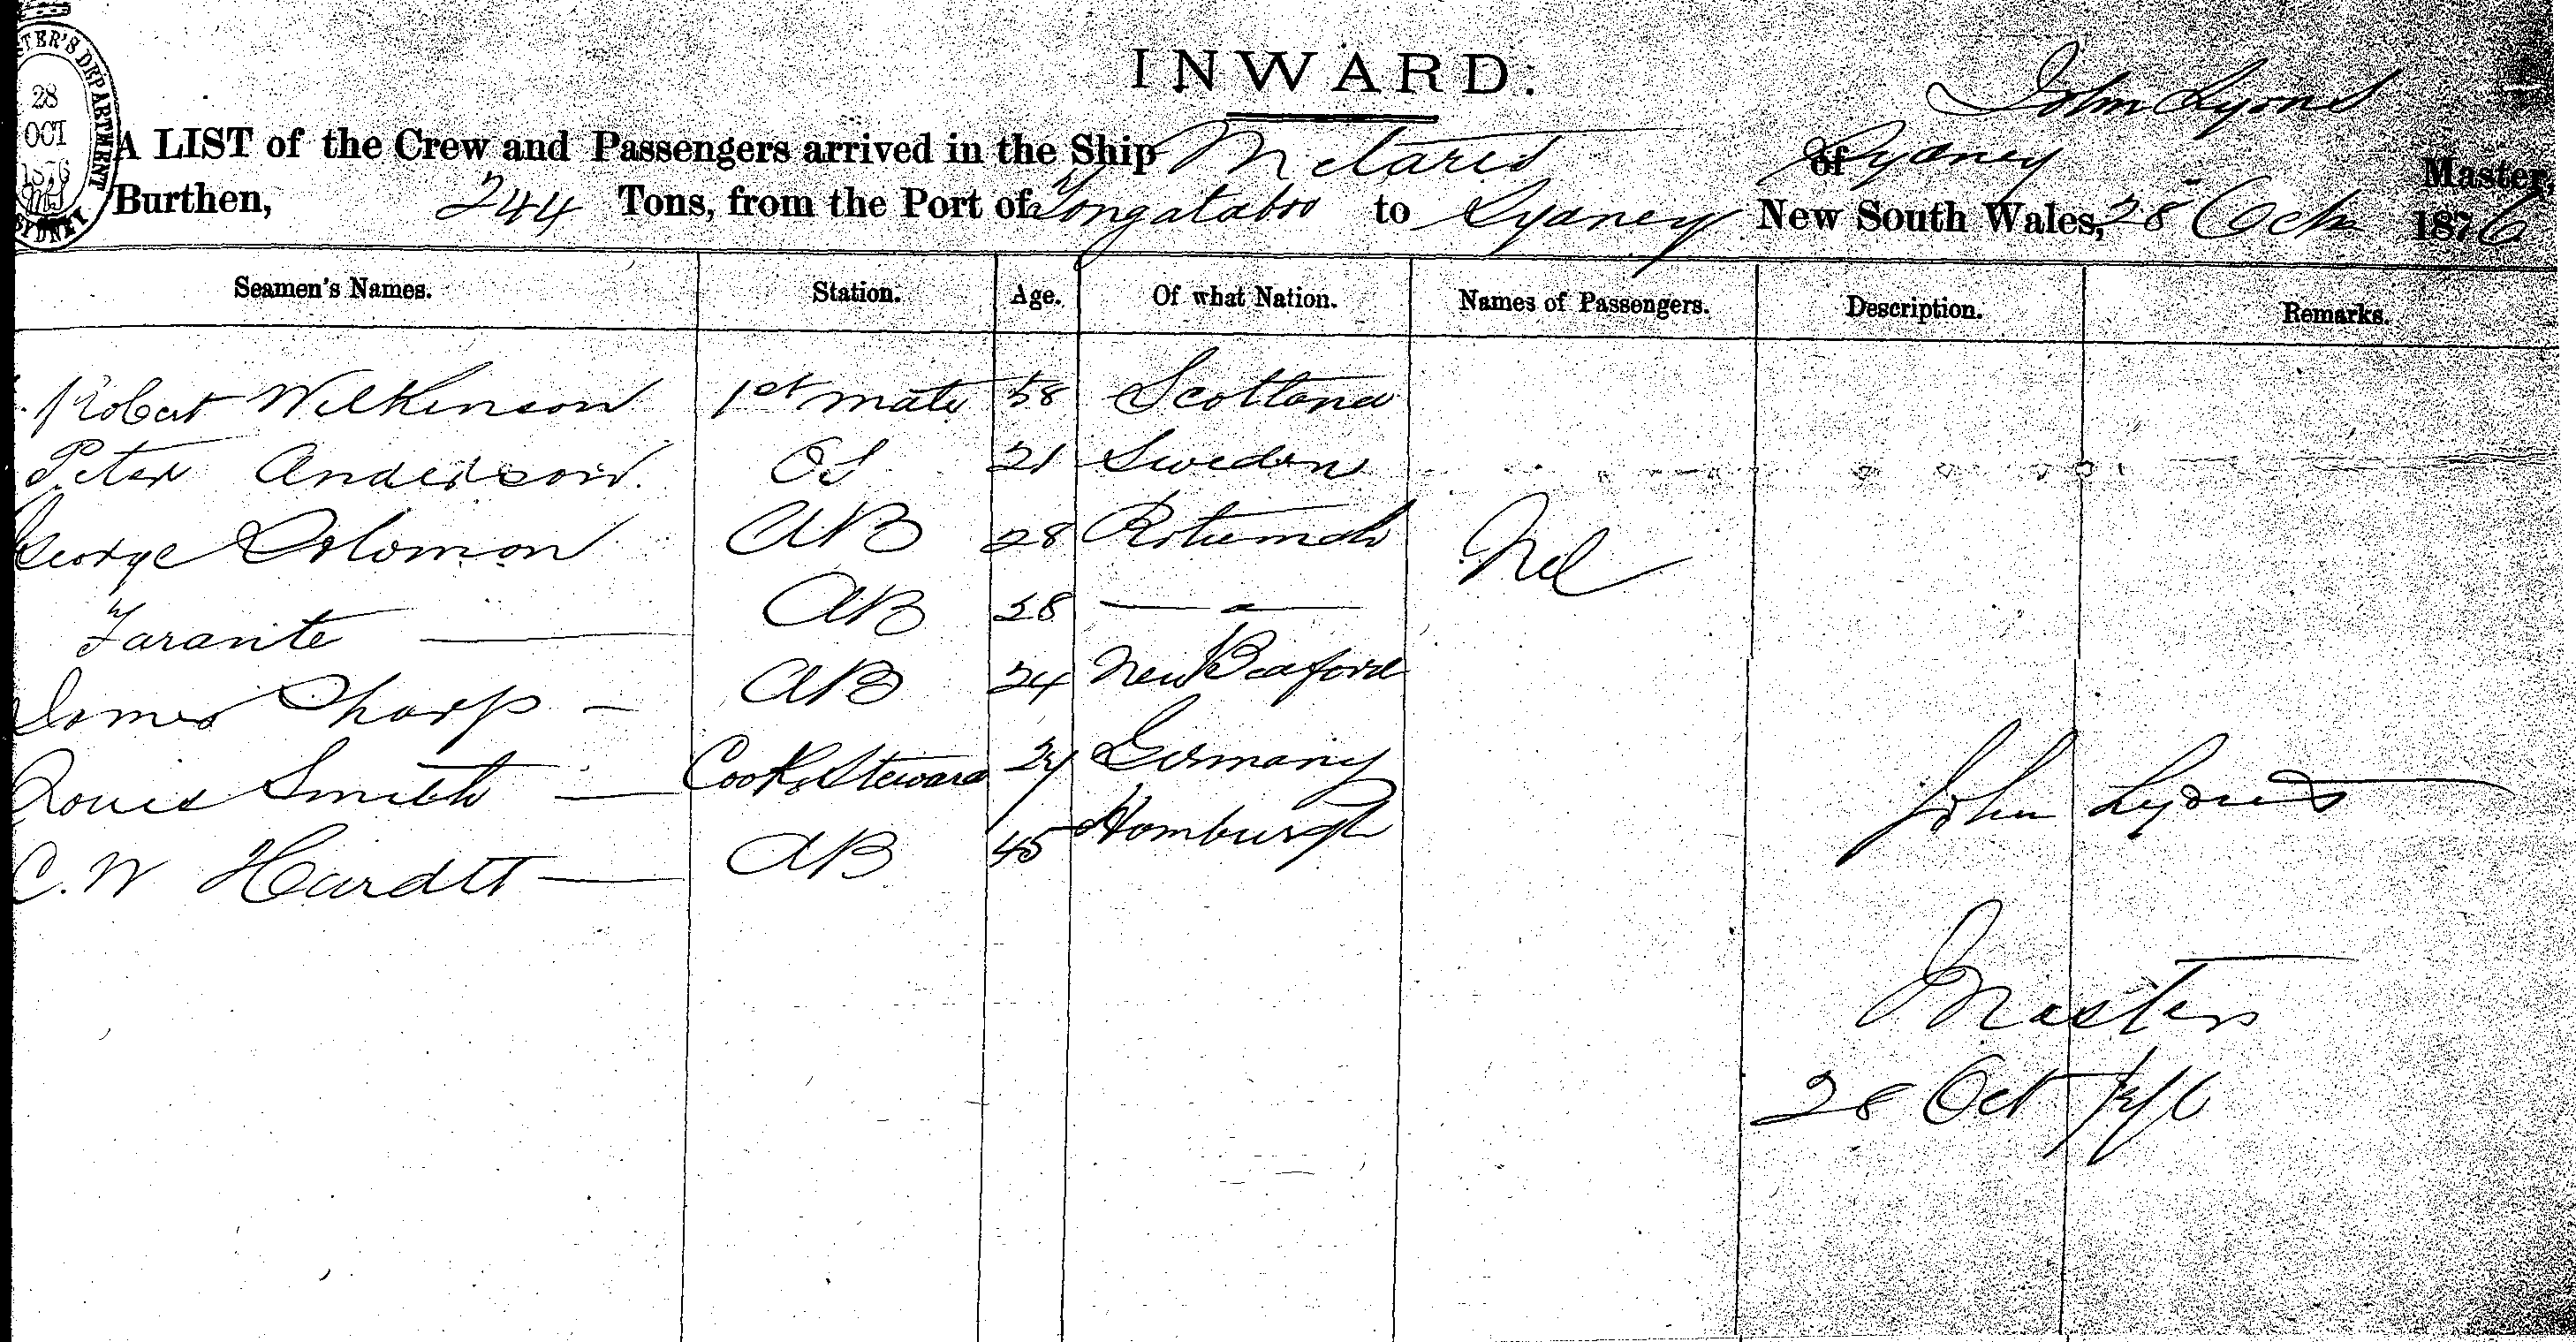 INWARD.
John Lyons
A LIST of the Crew and Passengers arrived in the Ship Metaris of Sydney Master,
Burthen, 244 Tons, from the Port of Tongataboo to Sydney New South Wales, 28 Octr 1876
TER'S DEPARTMENT
28
OCT
1876
SYDNEY
Seamen's Names. Station. Age. Of what Nation. Names of Passengers. Description. Remarks.
Robert Wilkinson 1st mate 58 Scotland
Peter Anderson OS 21 Sweden
George Solomon AB 28 Rotumah Nil
Tarante — AB 28 — " —
James Sharp — AB 24 New Bedford
Louis Smith — Cook & Steward Germany
C. W Hardtt — AB 45 Homburgh
John Lyons
Master
28 Oct 1876